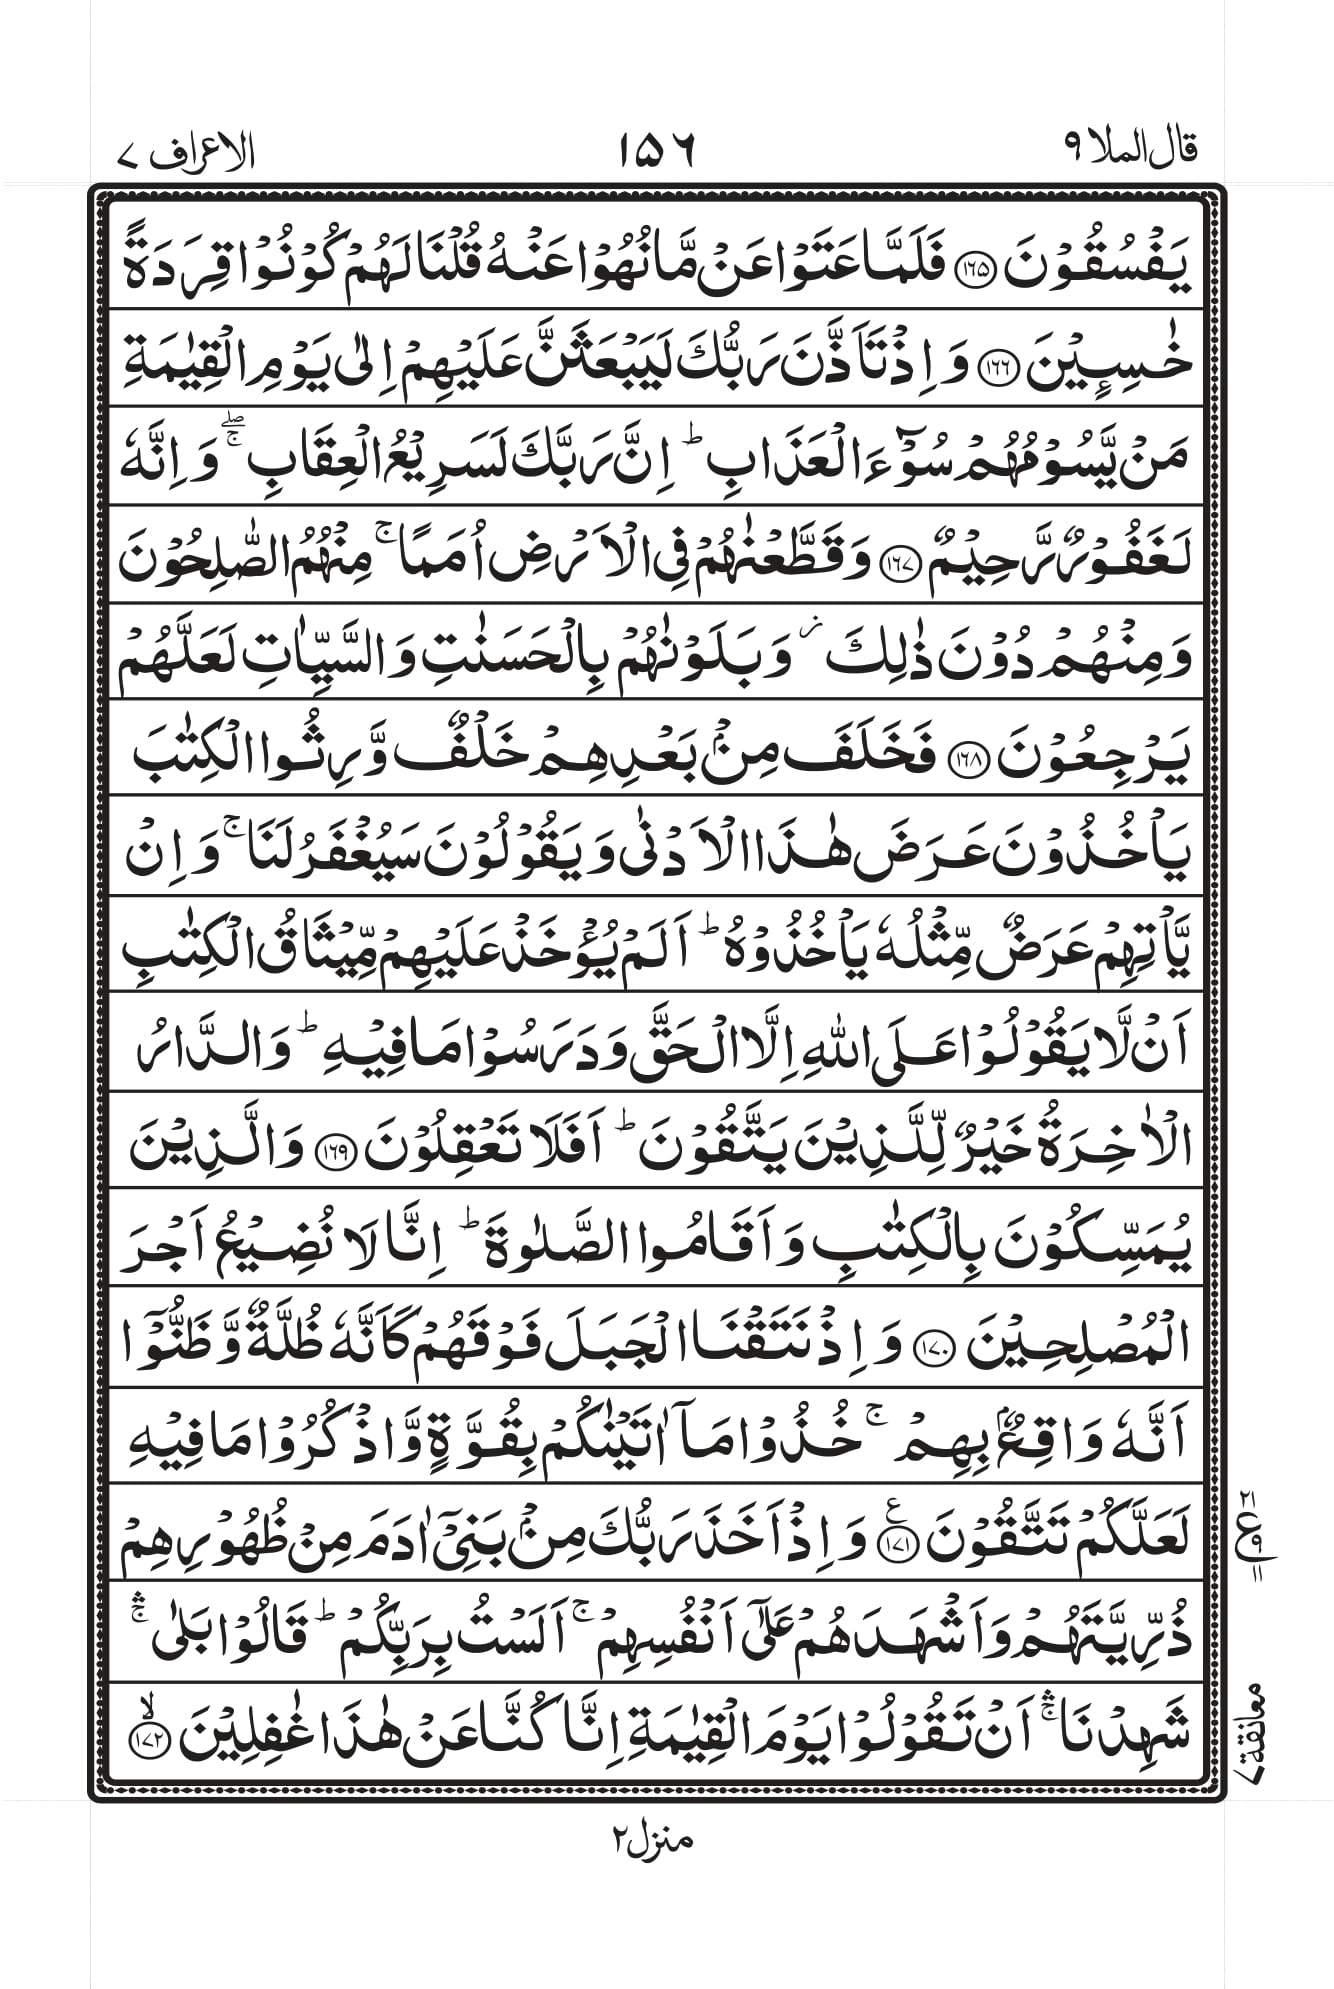 قال الملا ٩
١٥٦
الاعراف ٧
يَفْسُقُوْنَ ﴿١٦٥﴾ فَلَمَّا عَتَوْا عَنْ مَّا نُهُوْا عَنْهُ قُلْنَا لَهُمْ كُوْنُوْا قِرَدَةً
خٰسِـِٕيْنَ ﴿١٦٦﴾ وَ اِذْ تَاَذَّنَ رَبُّكَ لَيَبْعَثَنَّ عَلَيْهِمْ اِلٰى يَوْمِ الْقِيٰمَةِ
مَنْ يَّسُوْمُهُمْ سُوْٓءَ الْعَذَابِ ؕ اِنَّ رَبَّكَ لَسَرِيْعُ الْعِقَابِ ۖۚ وَ اِنَّهٗ
لَغَفُوْرٌ رَّحِيْمٌ ﴿١٦٧﴾ وَ قَطَّعْنٰهُمْ فِى الْاَرْضِ اُمَمًا ۚ مِنْهُمُ الصّٰلِحُوْنَ
وَ مِنْهُمْ دُوْنَ ذٰلِكَ ز وَ بَلَوْنٰهُمْ بِالْحَسَنٰتِ وَ السَّيِّاٰتِ لَعَلَّهُمْ
يَرْجِعُوْنَ ﴿١٦٨﴾ فَخَلَفَ مِنْۢ بَعْدِهِمْ خَلْفٌ وَّرِثُوا الْكِتٰبَ
يَاْخُذُوْنَ عَرَضَ هٰذَا الْاَدْنٰى وَ يَقُوْلُوْنَ سَيُغْفَرُ لَنَا ۚ وَ اِنْ
يَّاْتِهِمْ عَرَضٌ مِّثْلُهٗ يَاْخُذُوْهُ ؕ اَلَمْ يُؤْخَذْ عَلَيْهِمْ مِّيْثَاقُ الْكِتٰبِ
اَنْ لَّا يَقُوْلُوْا عَلَى اللّٰهِ اِلَّا الْحَقَّ وَ دَرَسُوْا مَا فِيْهِ ؕ وَ الدَّارُ
الْاٰخِرَةُ خَيْرٌ لِّلَّذِيْنَ يَتَّقُوْنَ ؕ اَفَلَا تَعْقِلُوْنَ ﴿١٦٩﴾ وَ الَّذِيْنَ
يُمَسِّكُوْنَ بِالْكِتٰبِ وَ اَقَامُوا الصَّلٰوةَ ؕ اِنَّا لَا نُضِيْعُ اَجْرَ
الْمُصْلِحِيْنَ ﴿١٧٠﴾ وَ اِذْ نَتَقْنَا الْجَبَلَ فَوْقَهُمْ كَاَنَّهٗ ظُلَّةٌ وَّ ظَنُّوْٓا
اَنَّهٗ وَاقِعٌۢ بِهِمْ ۚ خُذُوْا مَاۤ اٰتَيْنٰكُمْ بِقُوَّةٍ وَّ اذْكُرُوْا مَا فِيْهِ
لَعَلَّكُمْ تَتَّقُوْنَ ﴿١٧١﴾ ع وَ اِذْ اَخَذَ رَبُّكَ مِنْۢ بَنِىْٓ اٰدَمَ مِنْ ظُهُوْرِهِمْ
ذُرِّيَّتَهُمْ وَ اَشْهَدَهُمْ عَلٰٓى اَنْفُسِهِمْ ۚ اَلَسْتُ بِرَبِّكُمْ ؕ قَالُوْا بَلٰى ۛۚ
شَهِدْنَا ۛۚ اَنْ تَقُوْلُوْا يَوْمَ الْقِيٰمَةِ اِنَّا كُنَّا عَنْ هٰذَا غٰفِلِيْنَ ﴿١٧٢﴾ ۙ
٢١ ع ٩ ١١
معانقة ٧
منزل ٢